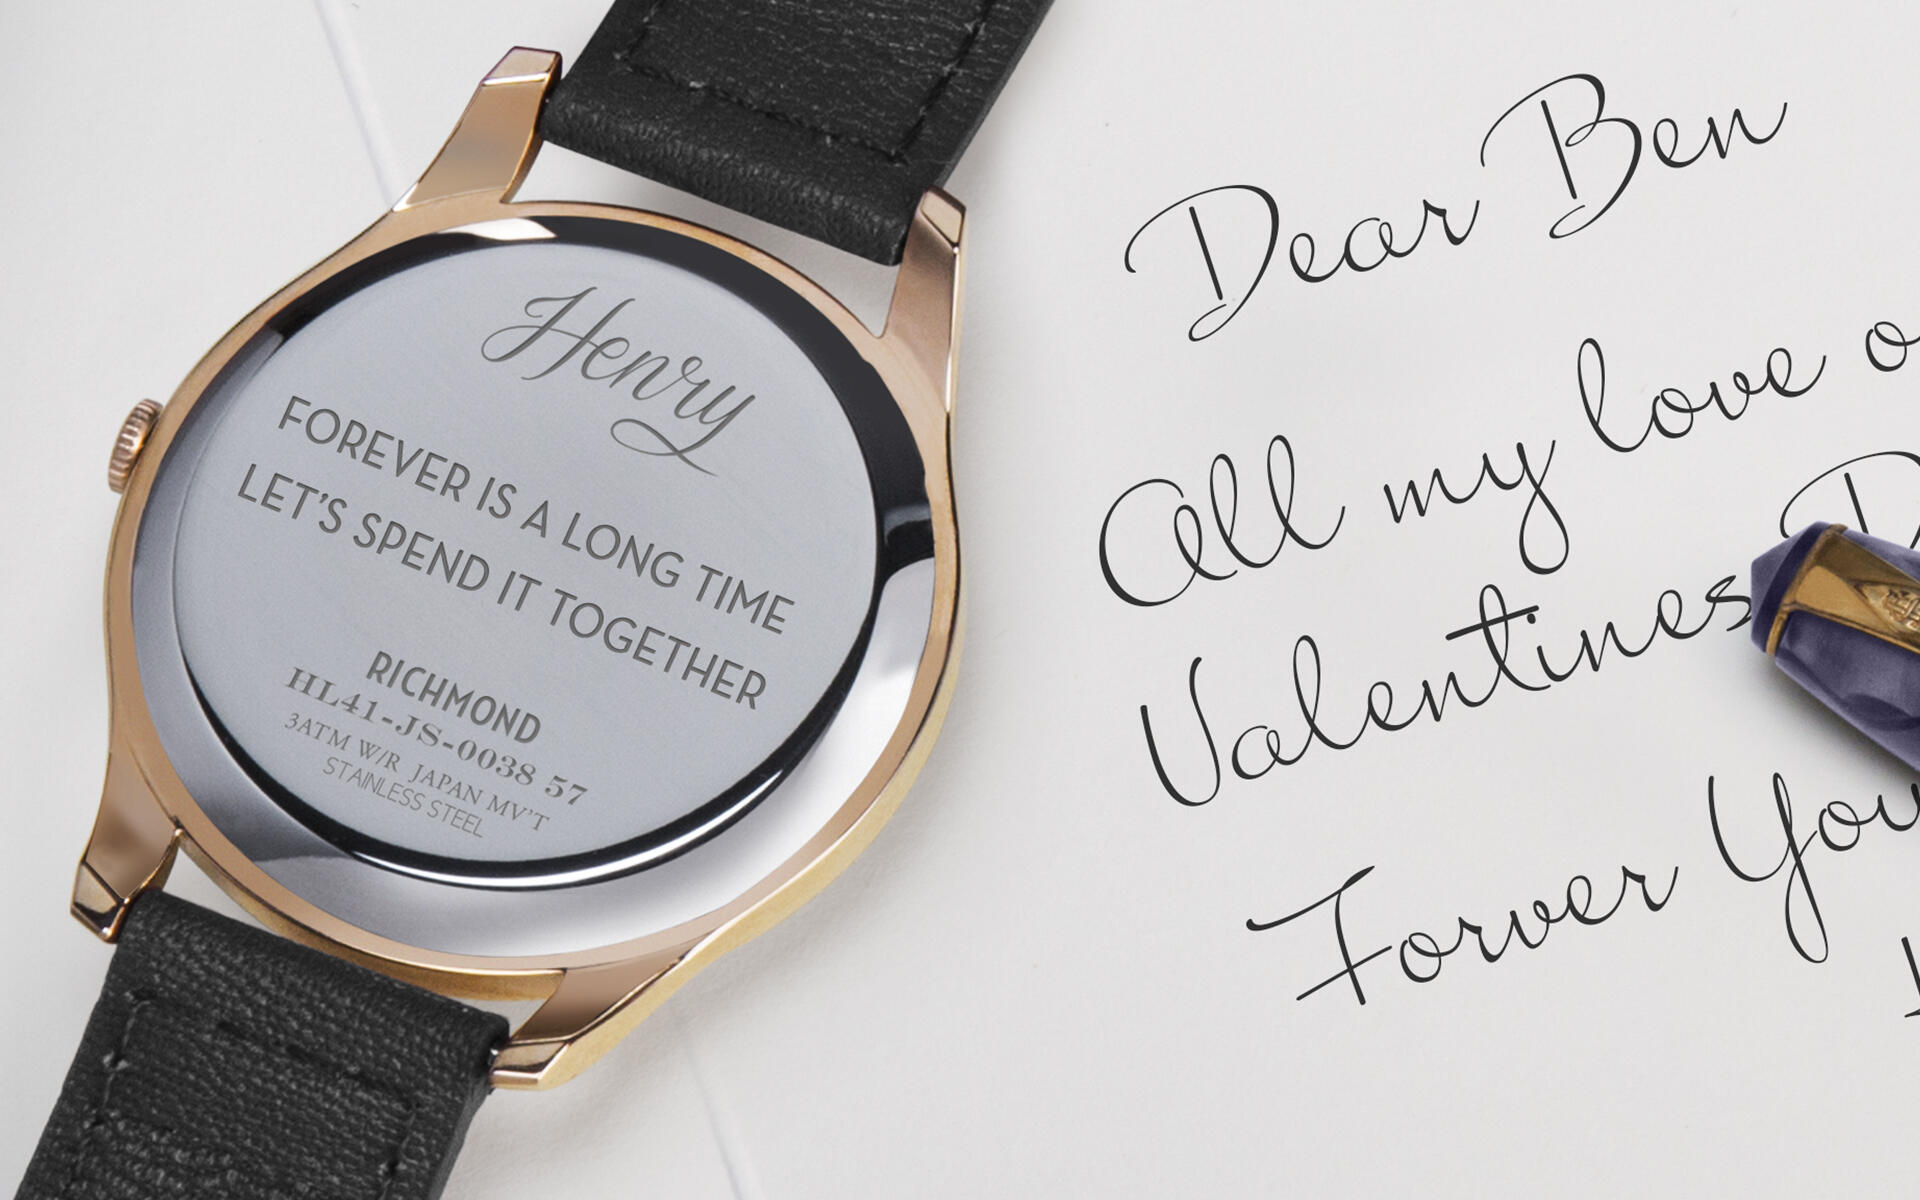 Henry
FOREVER IS A LONG TIME
LET'S SPEND IT TOGETHER
RICHMOND
HL41-JS-0038 57
3ATM W/R JAPAN MV'T
STAINLESS STEEL
Dear Ben
All my love
Valentines
Forver